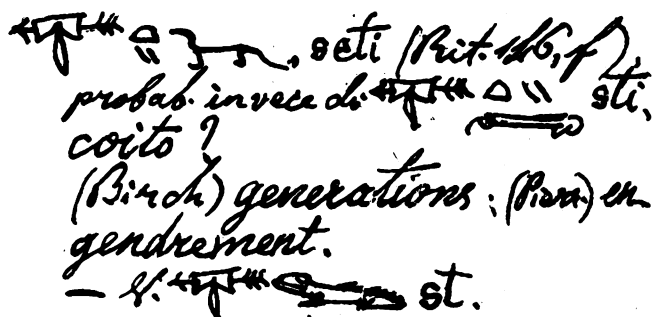 , seti (Rit. 146, f),
probab. invece di sti,
coito ?
(Birch) generations; (Pierr.) en-
gendrement.
— V. st.